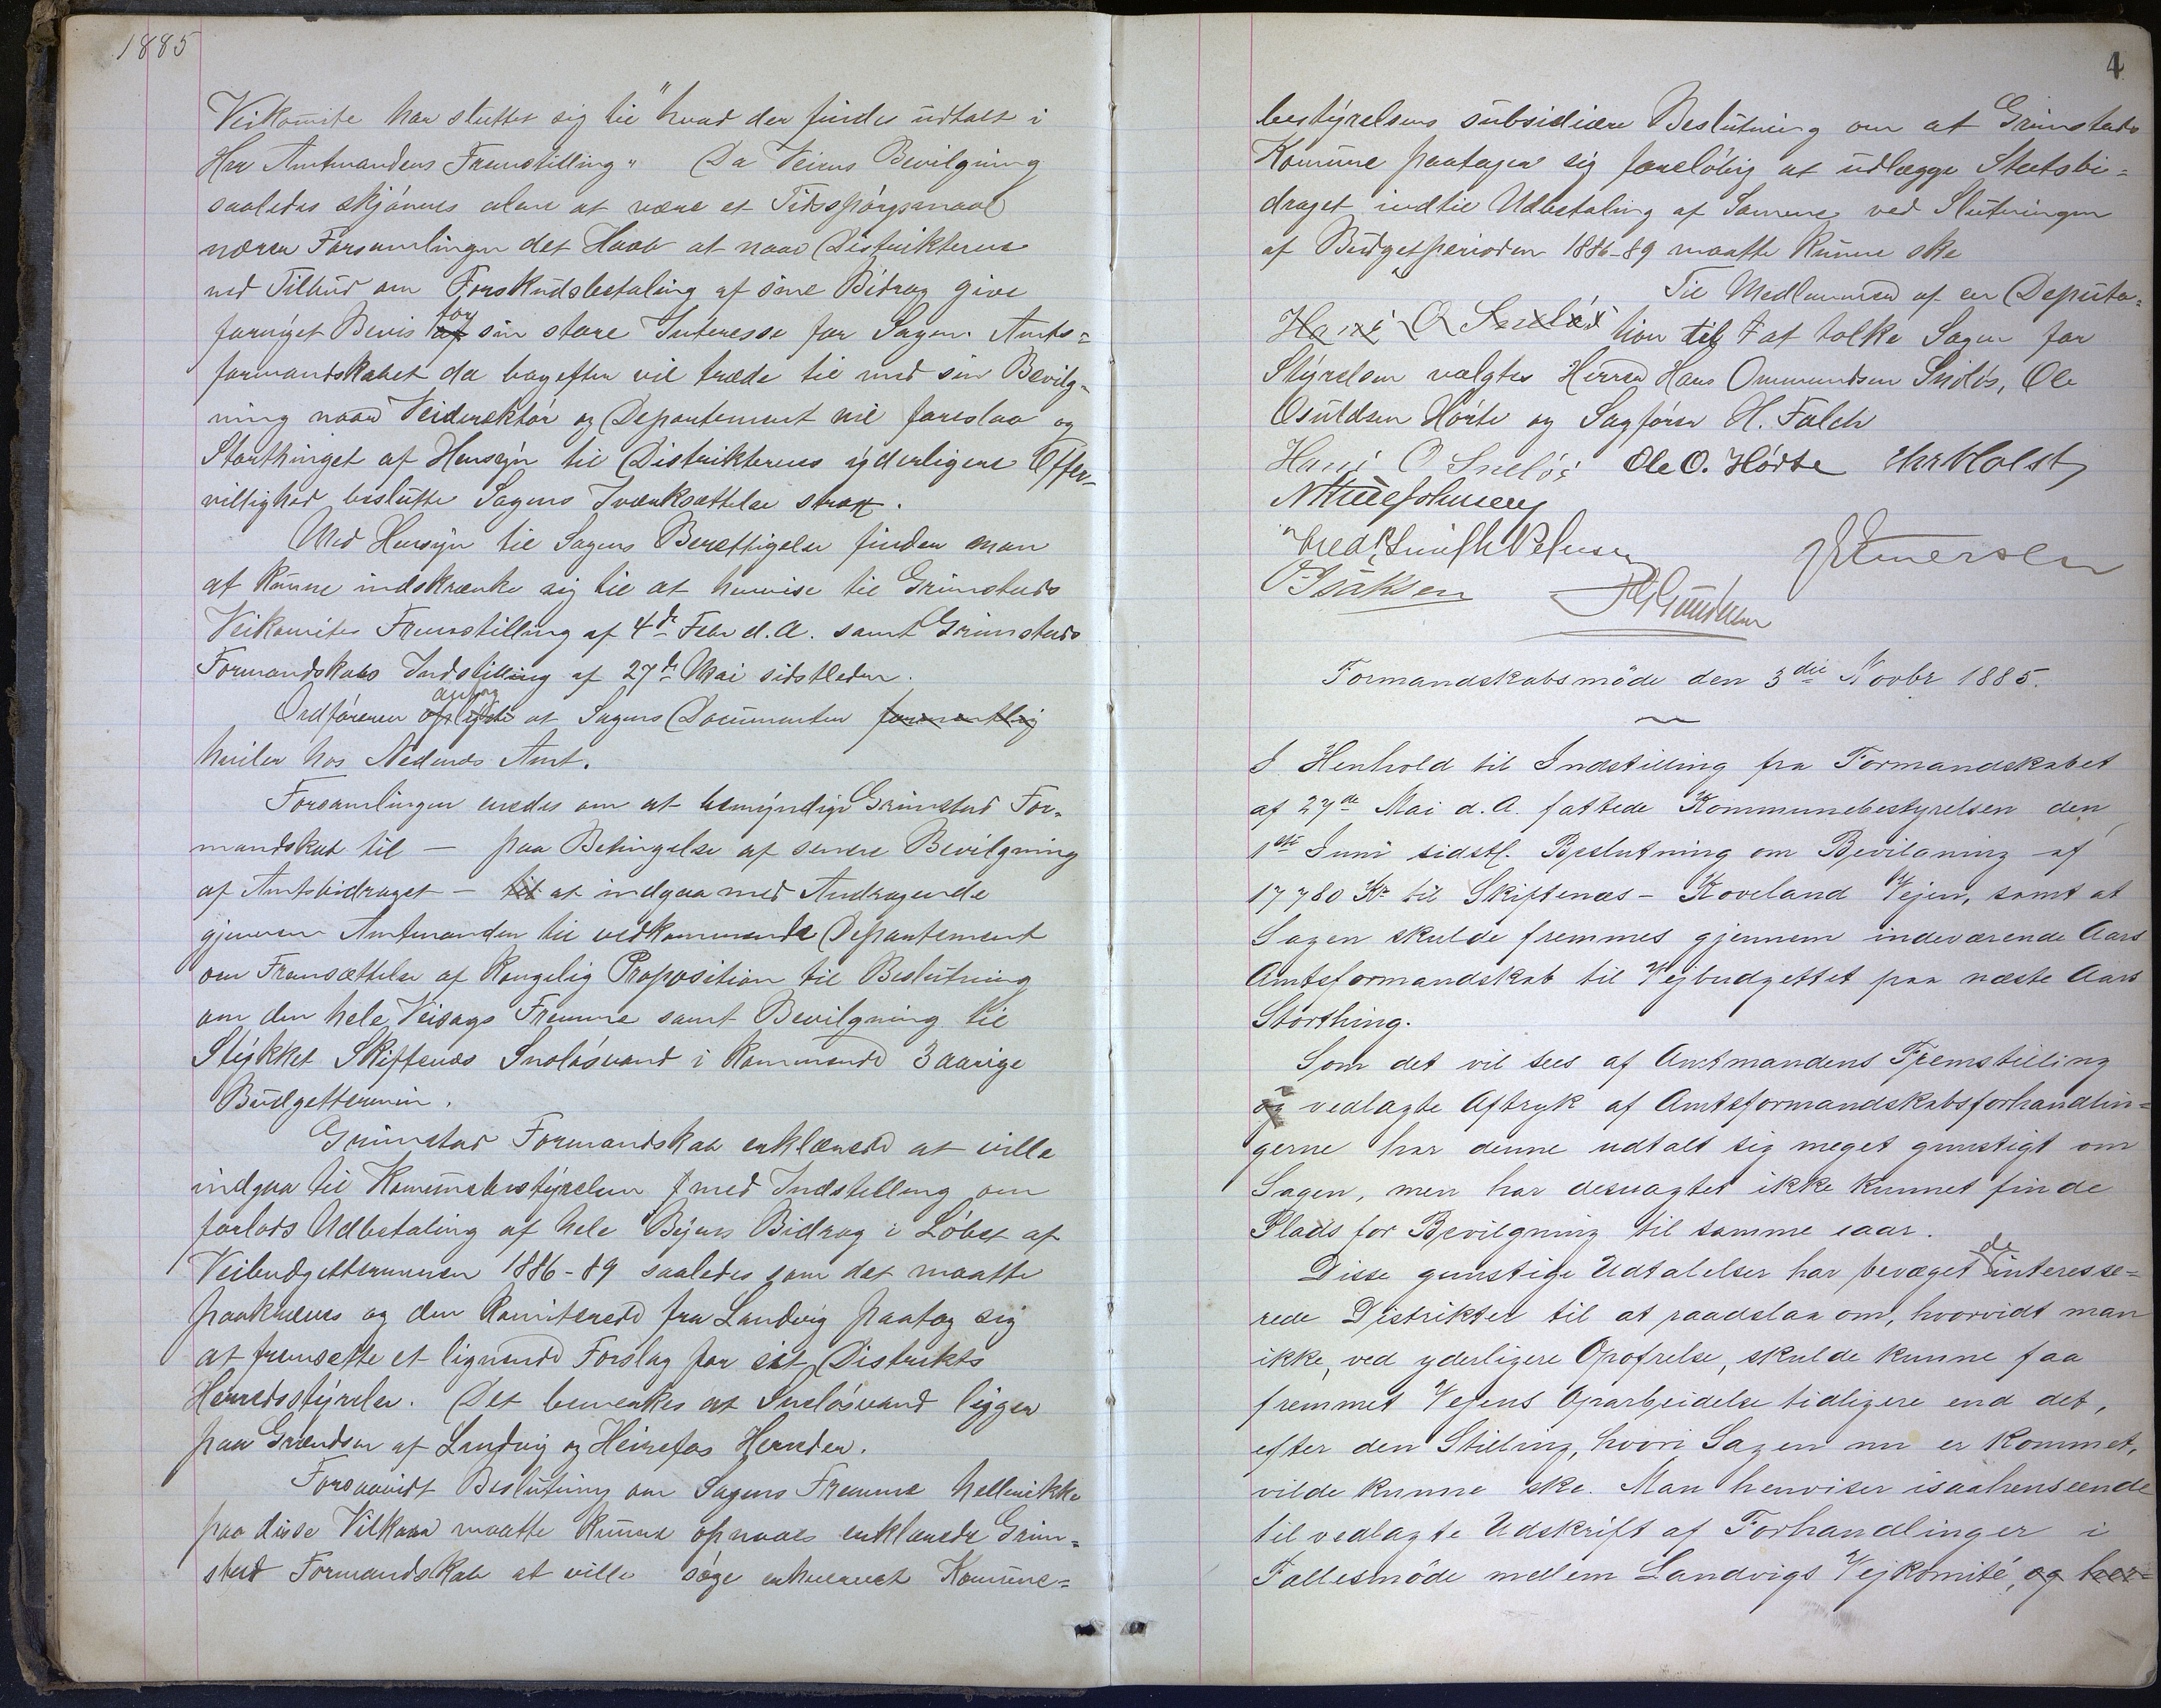 1885
Veikomite har sluttet sig til "hvad der findes udtalt i
Hrr Amtmandens Fremstilling" Da Veiens Bevilgning
saaledes skjönnes alene at være et Tidsspörgsmaal
nærer Forsamlingen det Haab at naar Distrikterne
ved Tilbud om Forskudsbetaling af sine Bidrag give
fornyet Bevis af for sin store Interesse for Sagen. Amts=
formandskabet da bagefter vil træde til med sin Bevilg=
ning naar Veidirektör og Departement vil foreslaa og
Storthinget af Hensyn til Distrikternes yderligere Offer=
villighed beslutte Sagens Iværksættelse strax.
Med Hensyn til Sagens Berettigelse finder man
at kunne indskrænke sig til at henvise til Grimstads
Veikomites Fremstilling af 4de Febr d.A. samt Grimstads
Formandskabs Indstilling af 27de Mai sidstleden.
Ordföreren oplyste antog at Sagens Documenter formentlig
hviler hos Nedenæs Amt.
Forsamlingen enedes om at bemyndige Grimstad For=
mandskab til — paa Betingelse af senere Bevilgning
af Amtsbidraget — til at indgaa med Andragende
gjennem Amtmanden til vedkommende Departement
om Fremsættelse af Kongelig Proposition til Beslutning
om den hele Veisags Fremme samt Bevilgning til
Stykket Skiftenæs Snelösvand i kommende 3 aarige
Budgettermin.
Grimstad Formandskab erklærede at ville
indgaa til Komunebestyrelsen med Indstilling om
forlods Udbetaling af hele Byens Bidrag i Löbet af
Veibudgetterminen 1886-89 saaledes som det maatte
paakræves og den Komiterede fra Landvig paatog sig
at fremsætte et lignende Forslag for sit Distrikts
Herredsstyrelse. Det bemerkes at Snelösvand ligger
paa Grændsen af Landvig og Heirefos Herreder.
Forsaavidt Beslutning om Sagens Fremme heller ikke
paa disse Vilkaar maatte kunne opnaaes erklærede Grim=
stad Formandskab at ville söge erhvervet Komune=
4
bestyrelsens subsidiære Beslutning om at Grimstads
Komune paatager sig foreløbig at udlægge Statsbi=
draget indtil Udbetaling af Samme ved Slutningen
af Budgetperioden 1886-89 maatte kunne ske
Til Medlemmer af en Deputa=
Hans O Snelös tion til at tolke Sagen for
Styrelsen valgtes Herrer Hans Ommundsen Snelös, Ole
Osuldsen Hörte og Sagförer H. Falch
Hans O Snelös Ole O. Hörte Chr Holst
Fredk Smith Petersen
O Isaksen
Formandskabsmöde den 3die Novbr 1885.
I Henhold til Indstilling fra Formandskabet
af 27de Mai d.A. fattede Kommunebestyrelsen den
1ste Juni sidstl. Beslutning om Bevilgning af
17 780 Kr til Skiftenæs – Roveland Vejen, samt at
Sagen skulde fremmes gjennem indeværende Aars
Amtsformandskab til Vejbudgettet paa næste Aars
Storthing.
Som det vil sees af Amtmandens Fremstilling
og vedlagte Aftryk af Amtsformandskabsforhandlin=
gerne har denne udtalt sig meget gunstigt om
Sagen, men har desuagtet ikke kunnet finde
Plads for Bevilgning til samme iaar.
Disse gunstige Udtalelser har bevæget de interesse=
rede Distrikter til at raadslaa om, hvorvidt man
ikke, ved yderligere Opofrelse, skulde kunne faa
fremmet Vejens Oparbeidelse tidligere end det,
efter den Stilling, hvori Sagen nu er kommet,
vilde kunne ske. Man henviser isaahenseende
til vedlagte Udskrift af Forhandlinger i
Fællesmöde mellem Landvigs Vejkomité, og her=